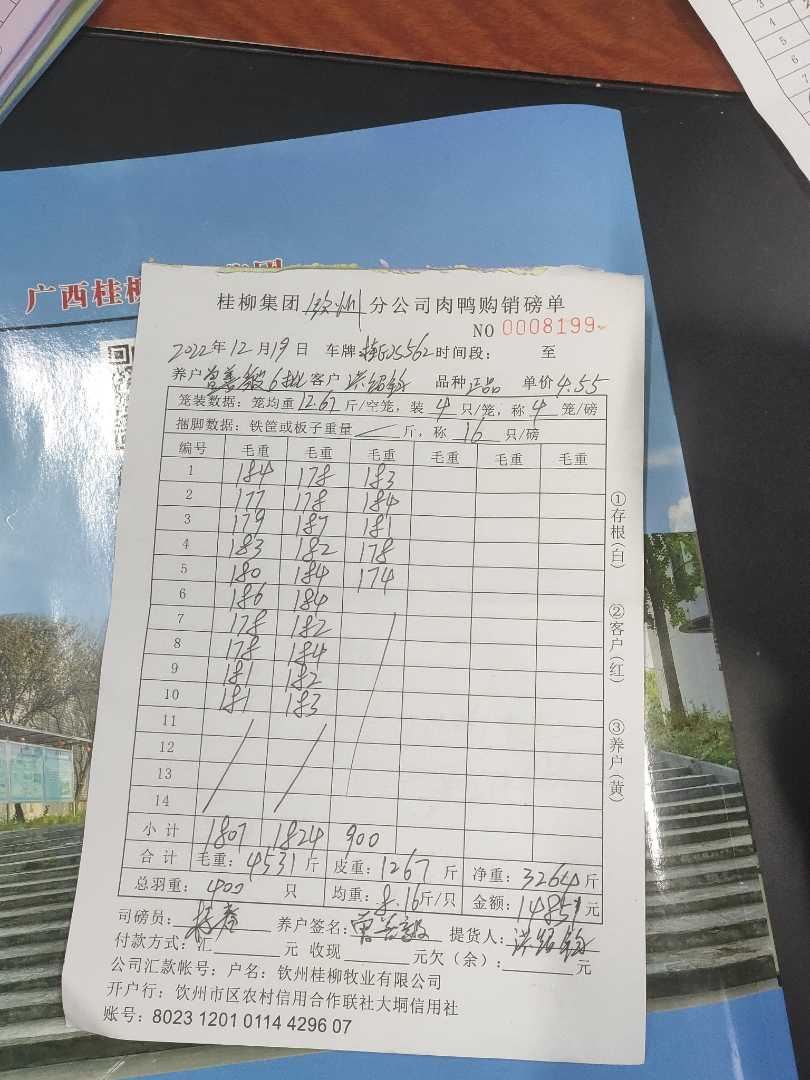 广西桂
桂柳集团钦州分公司肉鸭购销磅单
NO 0008199
2022年12月19日 车牌 25562 时间段： 至
养户 6批 客户 洪绍 品种 正品 单价 4.55
笼装数据：笼均重 12.67 斤/空笼，装 4 只/笼，称 4 笼/磅
捆脚数据：铁筐或板子重量 斤，称 16 只/磅
编号 毛重 毛重 毛重 毛重 毛重 毛重
1 184 178 183
2 177 178 184
3 179 187 181
4 183 182 178
5 180 184 174
6 186 184
7 178 182
8 178 184
9 181 182
10 181 183
11
12
13
14
小计 1807 1824 900
合计 毛重：4531斤 皮重：1267斤 净重：3264斤
总羽重：400 只 均重：8.16斤/只 金额：14851元
司磅员： 养户签名：曾 提货人：洪绍
付款方式：汇 元 收现 元欠（余）： 元
公司汇款帐号：户名：钦州桂柳牧业有限公司
开户行：饮州市区农村信用合作联社大垌信用社
账号：8023 1201 0114 4296 07
①存根（白）
②客户（红）
③养户（黄）